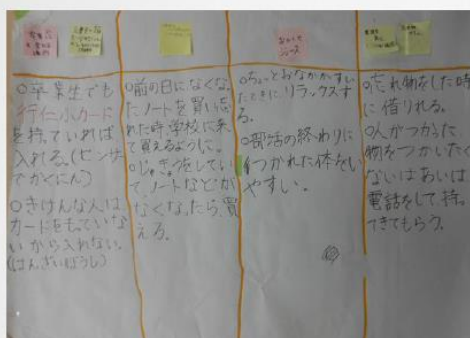 おかしやジュース
○卒業生でも
行仁小カード
を持っていれば
入れる。(センサー
でかくにん)
○きけんな人は
カードをもっていな
いから入れない。
(はんざいぼうし)
○前の日になくなっ
たノートを買い忘
れた時、学校に来
て買えるように。
○じゅぎょうをしてい
て、ノートなどが
なくなったら、買
える。
○ちょっとおなかがすい
たときにリラックスす
る。
○部活の終わりに
つかれた体をい
やすい。
○忘れ物をした時
に借りれる。
○人がつかった
物をつかいたく
ないはあいは
電話をして、持っ
てきてもらう。